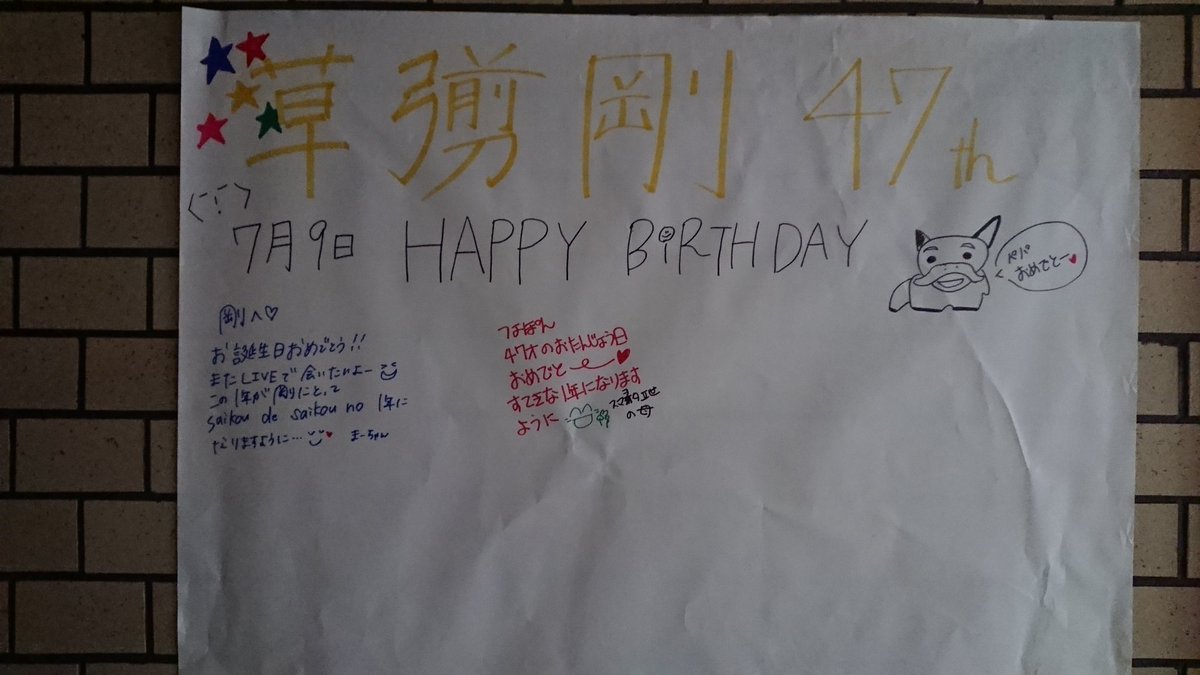 草彅剛 47th
7月9日 HAPPY BiRTHDAY
パパ
おめでとー
剛へ♡
お誕生日おめでとう!!
またLIVEで会いたいよー
この1年が剛にとって
saikou de saikou no 1年に
なりますように… まーちゃん
つよぽん
47才のおたんじょう日
おめでと〜♥
すてきな1年になります
ように
の母